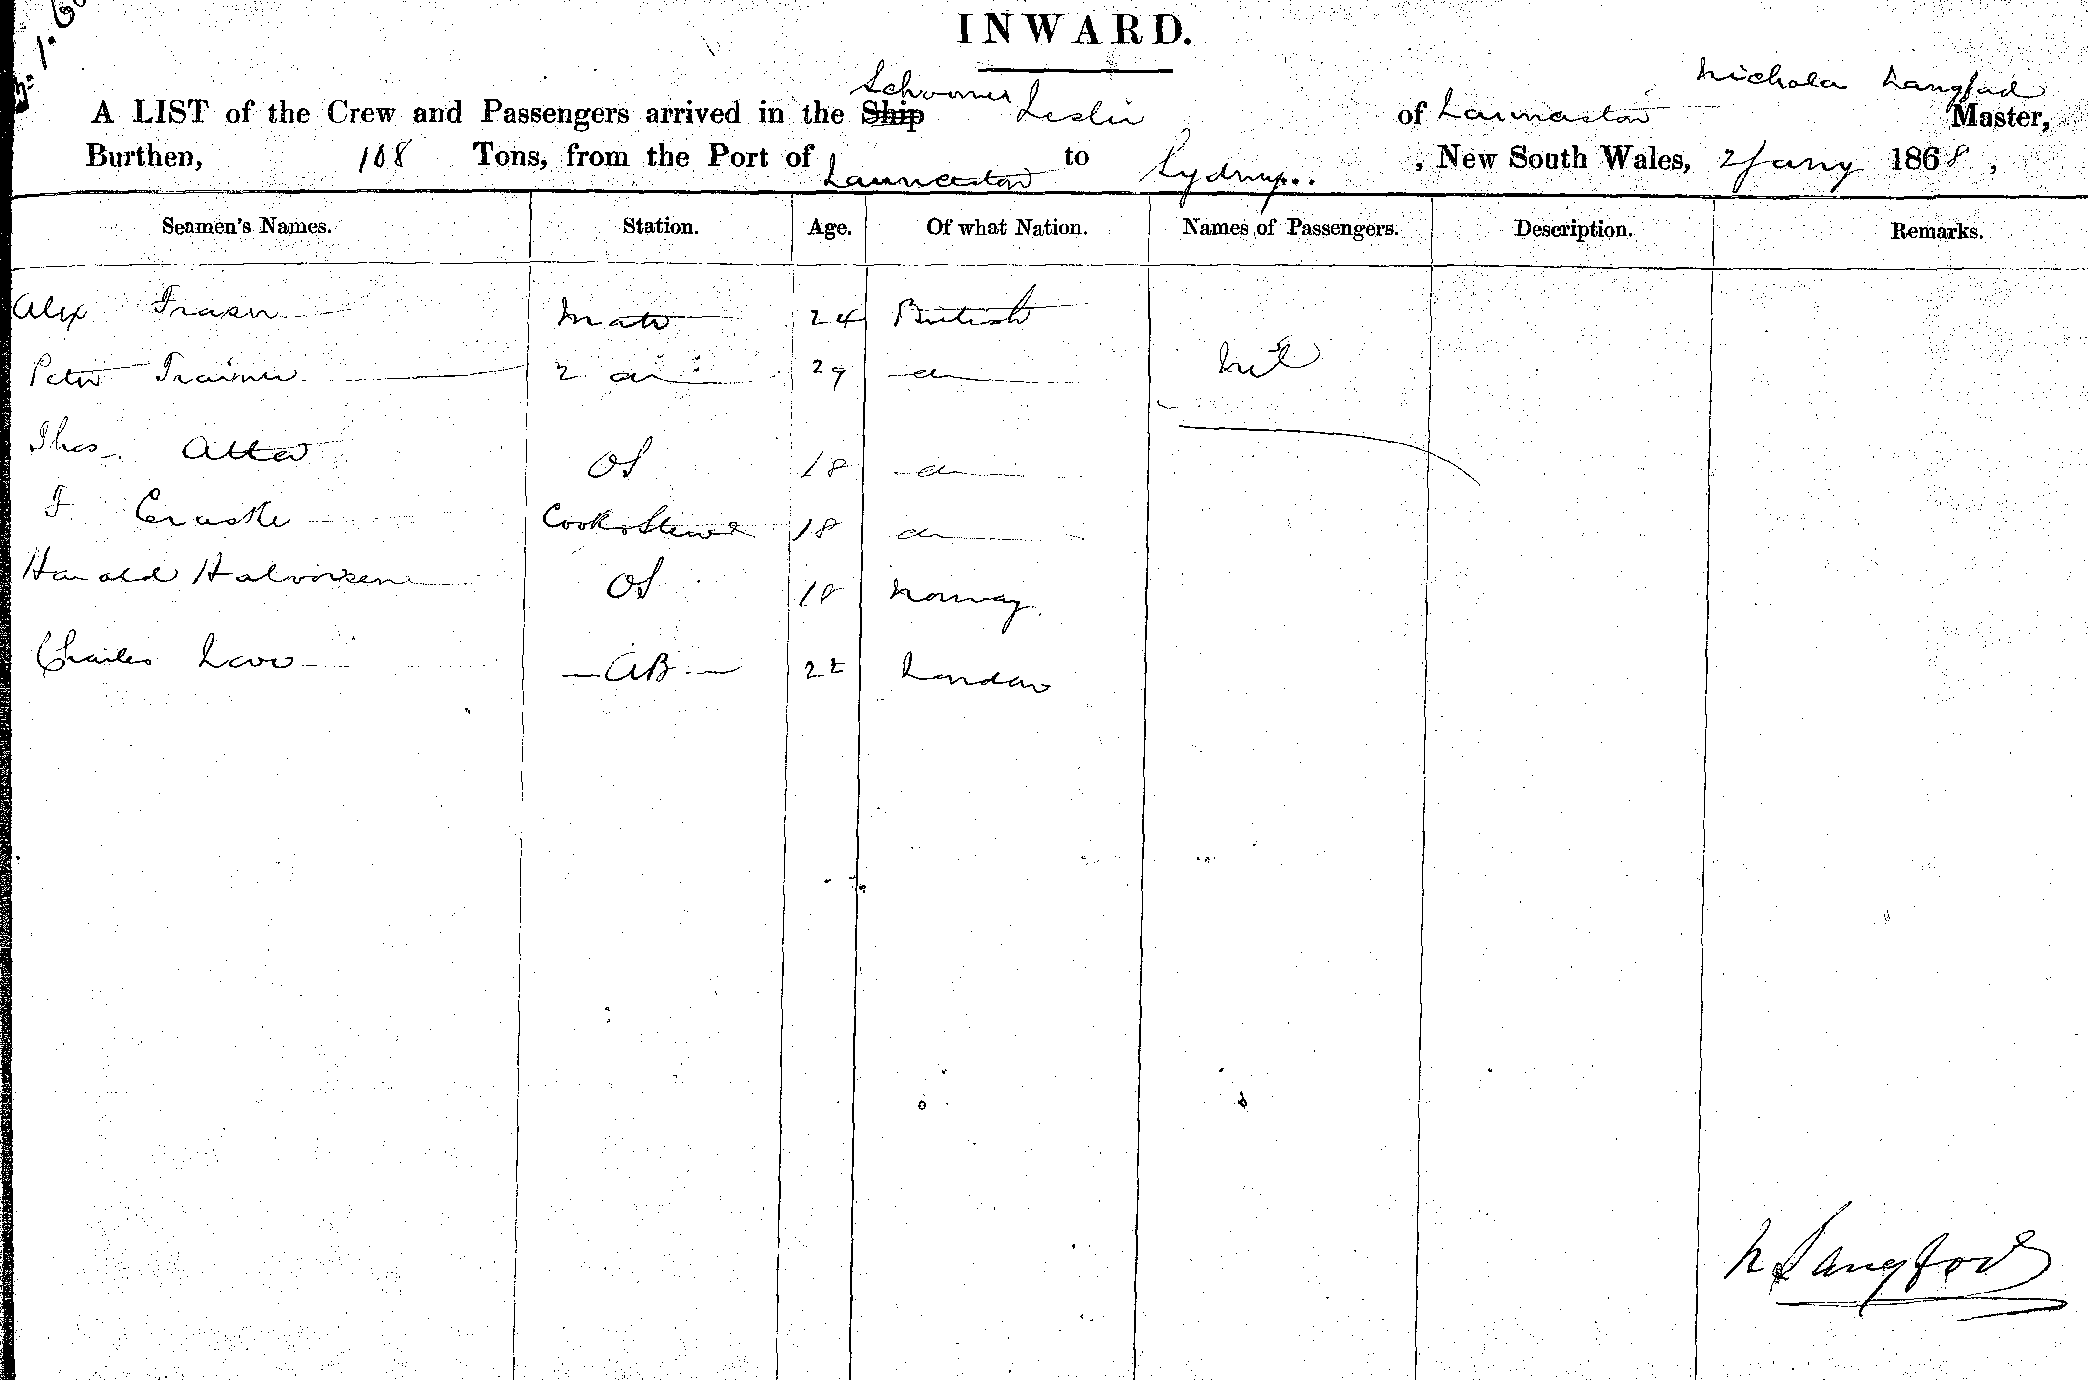 INWARD.
Nichola Langford
Schooner
A LIST of the Crew and Passengers arrived in the Ship Leslie of Launceston Master,
Burthen, 108 Tons, from the Port of Launceston to Sydney , New South Wales, 2 Jany 1868,
Seamen's Names. Station. Age. Of what Nation. Names of Passengers. Description. Remarks.
Alex Fraser Mate 24 British
Peter Trainer 2 do 29 do Nil
Thos. OS 18 do
Cook & Steward 18 do
Harald Halvorsen OS 18 Norway
Charles AB 22 London
N Langford